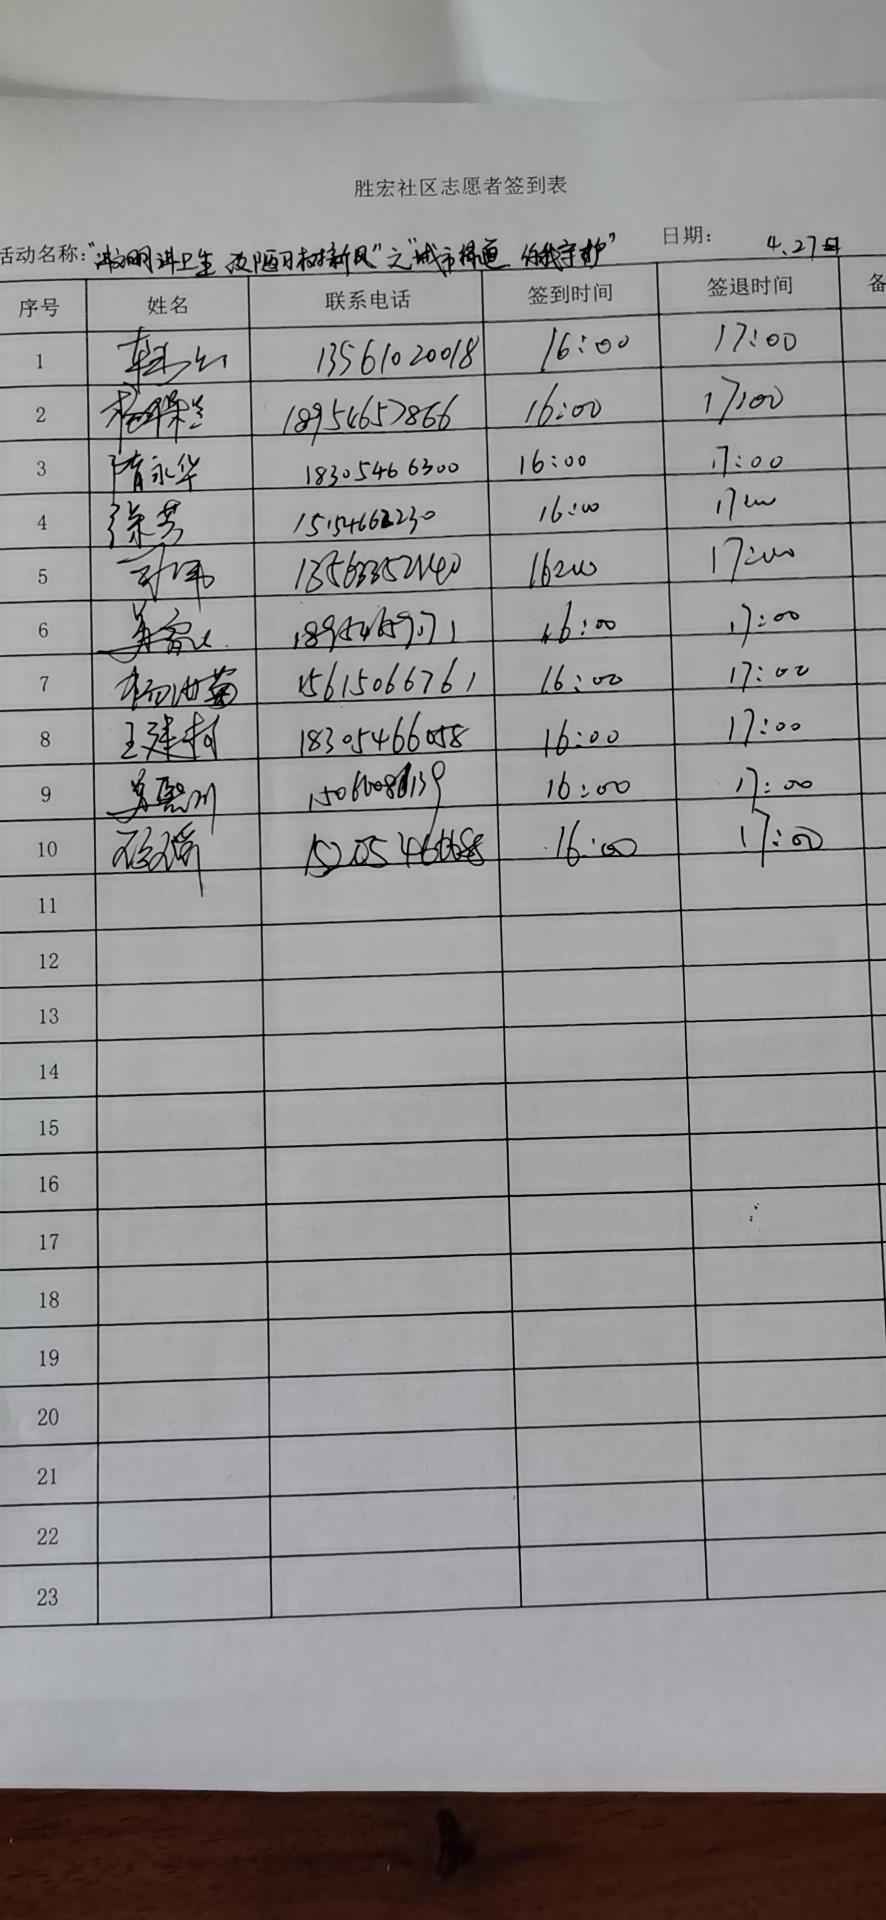 胜宏社区志愿者签到表
活动名称："讲文明讲卫生 改陋习树新风"之"城市 你我守护" 日期： 4.27日
序号 姓名 联系电话 签到时间 签退时间 备
1 13561020018 16:00 17:00
2 18954657866 16:00 17:00
3 隋永华 18305466300 16:00 17:00
4 徐芳 16:00 17:00
5 16:00 17:00
6 16:00 17:00
7 15615066761 16:00 17:00
8 王建村 18305466058 16:00 17:00
9 16:00 17:00
10 16:00 17:00
11
12
13
14
15
16
17
18
19
20
21
22
23